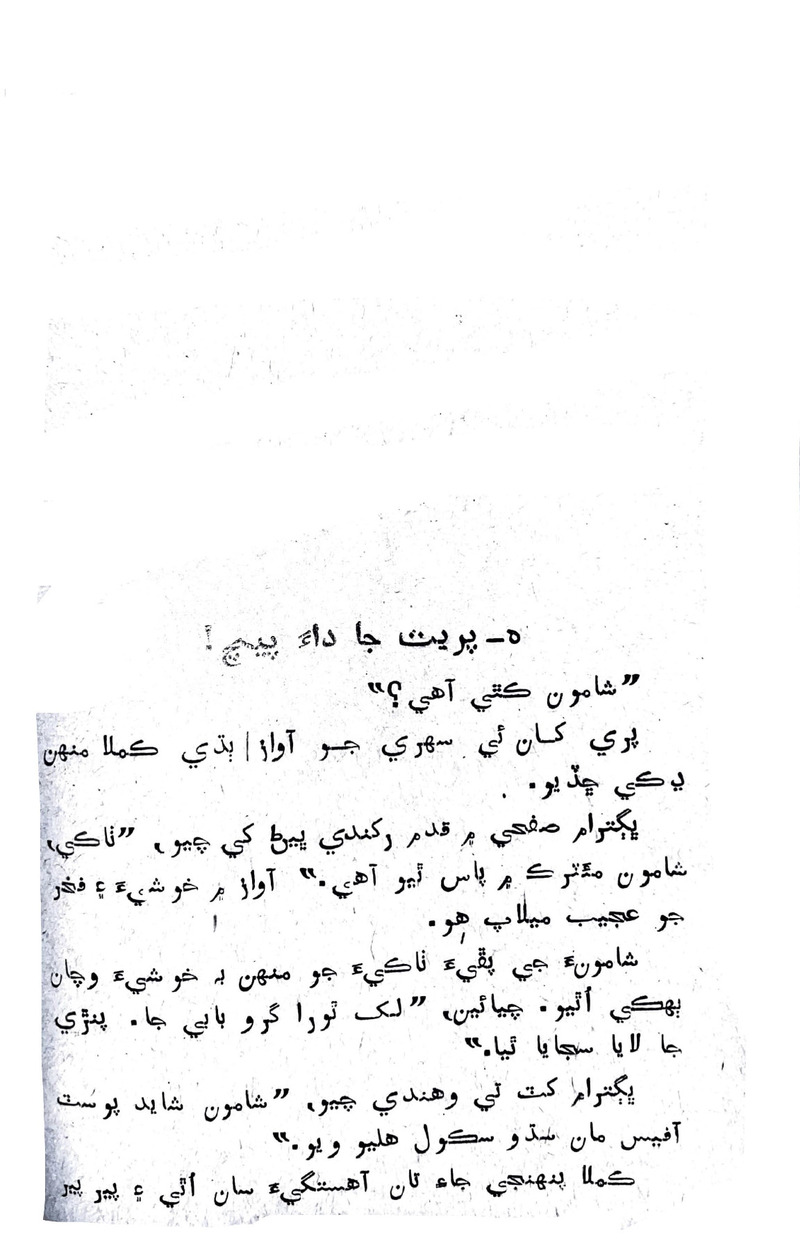 ٥- پريت جا داءَ پيچ!
”شامون ڪٿي آهي؟“
پري کان ئي سهري جو آواز ٻڌي ڪملا منهن
ڍڪي ڇڏيو.
ڀڳترام صفحي ۾ قدم رکندي ڀيڻ کي چيو، ”ناڪي،
شامون مئٽرڪ ۾ پاس ٿيو آهي.“ آواز ۾ خوشيءَ ۽ فخر
جو عجيب ميلاپ هو.
شامونءَ جي پڦيءَ ناڪيءَ جو منهن بہ خوشيءَ وچان
ٻهڪي اُٿيو. چيائين، ”لک ٿورا گرو بابي جا. پنڙي
جا لايا سجايا ٿيا.“
ڀڳترام کٽ تي وهندي چيو، ”شامون شايد پوسٽ
آفيس مان سڌو سڪول هليو ويو.“
ڪملا پنهنجي جاءِ تان آهستگيءَ سان اُٿي ۽ پير پير